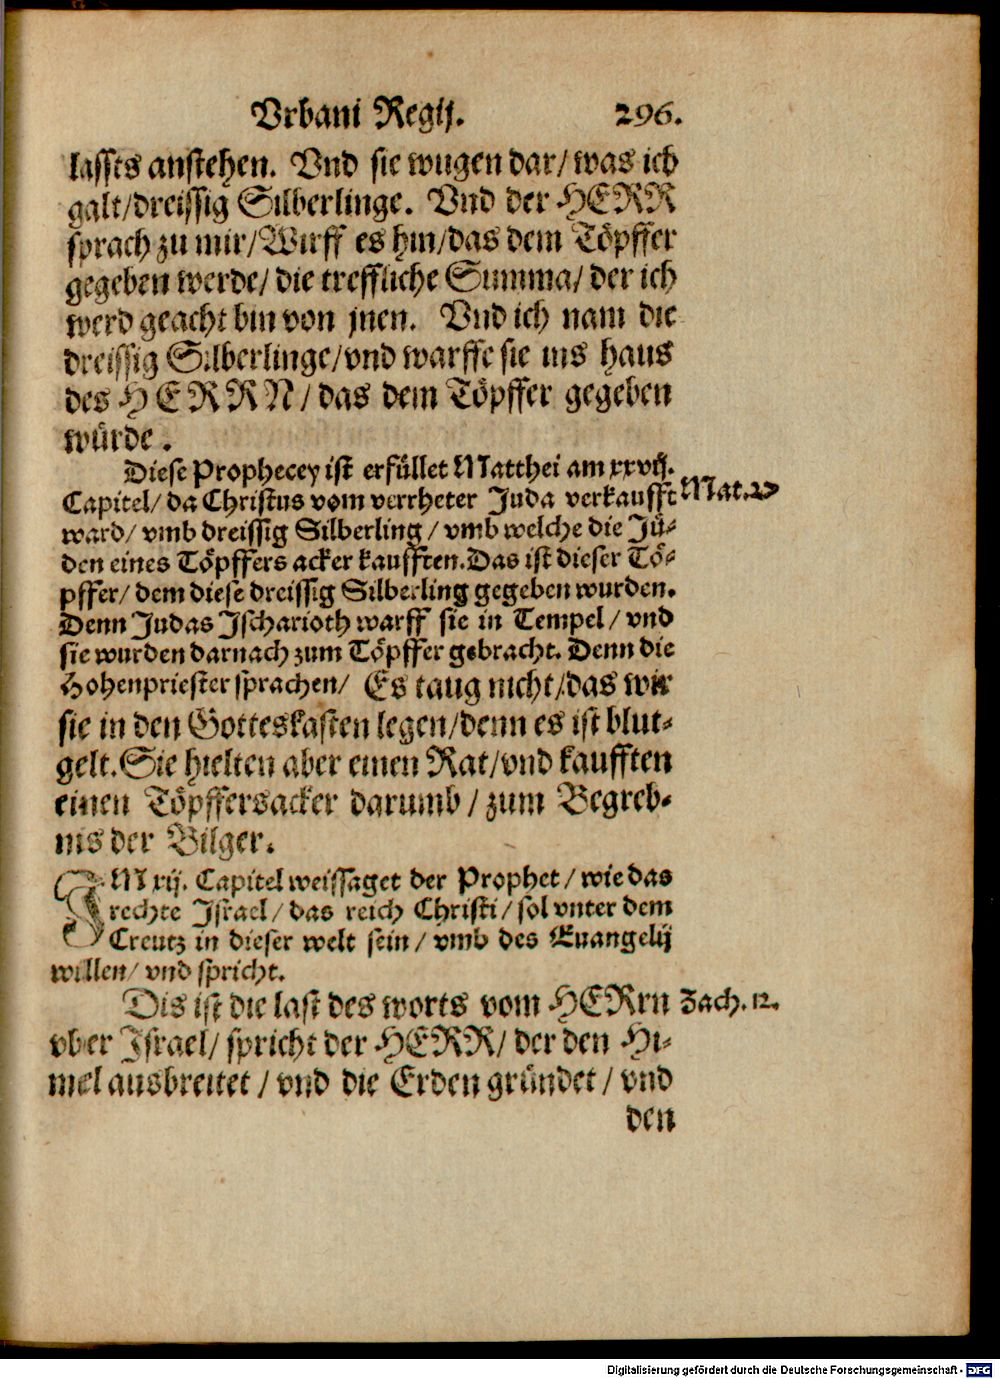 Vrbani Regij. 296.
lassts anstehen. Vnd sie wugen dar/ was ich
galt/dreissig Silberlinge. Vnd der HERR
sprach zu mir/Wirff es hin/das dem Töpffer
gegeben werde/ die treffliche Summa/ der ich
werd geacht bin von jnen. Vnd ich nam die
dreissig Silberlinge/vnd warffe sie ins haus
des HERRN/ das dem Töpffer gegeben
würde.
Diese Prophecey ist erfüllet Matthei am xxvij.
Capitel/ da Christus vom verrheter Juda verkaufft Mat.27
ward/ vmb dreissig Silberling/ vmb welche die Jü-
den eines Töpffers acker kaufften. Das ist dieser Tö-
pffer/ dem diese dreissig Silberling gegeben wurden.
Denn Judas Jscharioth warff sie in Tempel/ vnd
sie wurden darnach zum Töpffer gebracht. Denn die
Hohenpriester sprachen/ Es taug nicht/das wir
sie in den Gotteskasten legen/denn es ist blut-
gelt. Sie hielten aber einen Rat/vnd kaufften
einen Töpffersacker darumb/ zum Begreb-
nis der Bilger.
JM xij. Capitel weissaget der Prophet/ wie das
rechte Jsrael/ das reich Christi/ sol vnter dem
Creutz in dieser welt sein/ vmb des Euangelij
willen/ vnd spricht.
Dis ist die last des worts vom HERrn Zach. 12.
vber Jsrael/ spricht der HERR/ der den Hi-
mel ausbreitet/ vnd die Erden gründet/ vnd
den
Digitalisierung gefördert durch die Deutsche Forschungsgemeinschaft - DFG